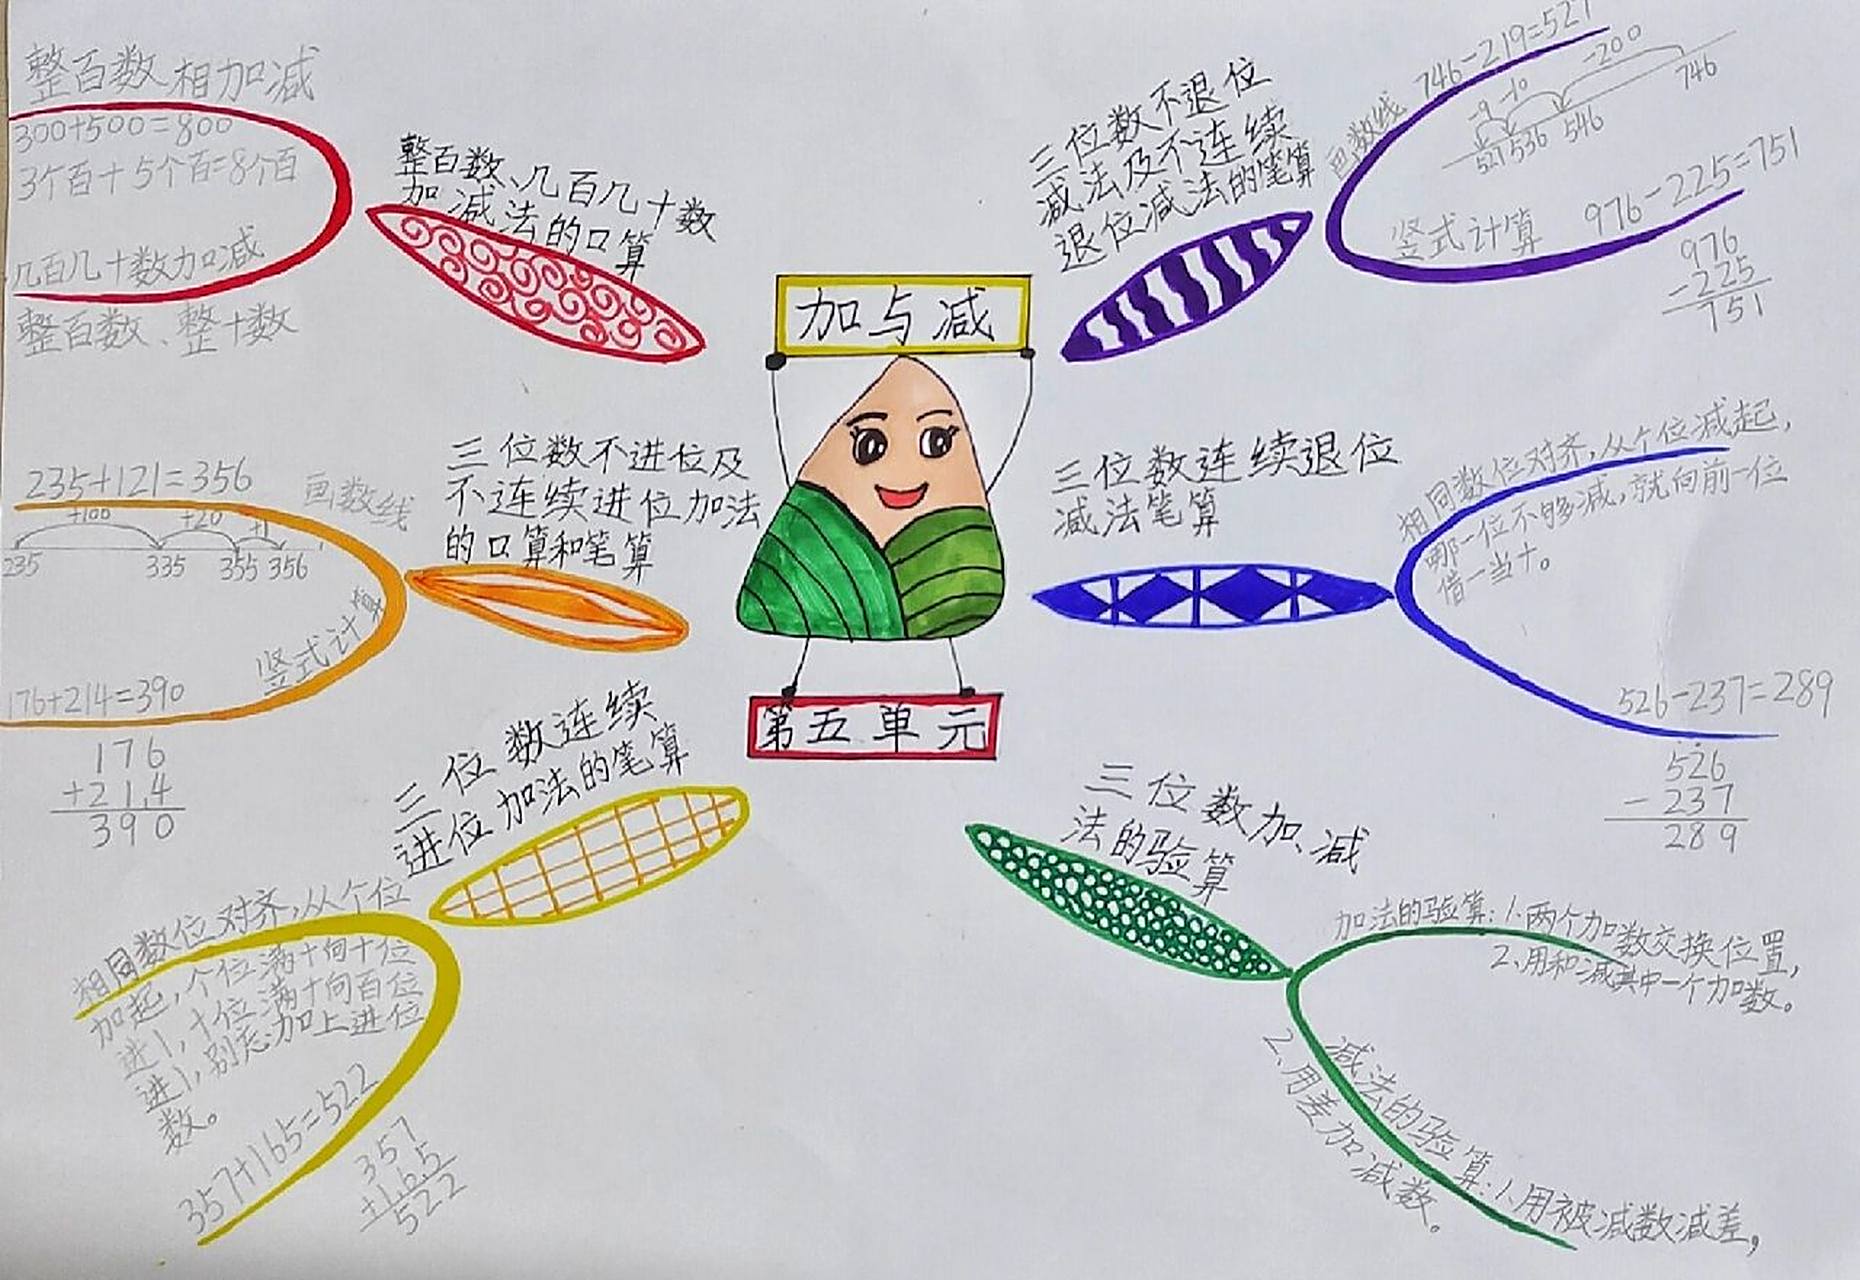 加与减
第五单元
整百数、几百几十数
加减法的口算
整百数相加减
300+500=800
3个百+5个百=8个百
几百几十数加减
整百数、整十数
三位数不进位及
不连续进位加法
的口算和笔算
235+121=356
画数线
+100 +20 +1
235 335 355 356
竖式计算
176+214=390
176
+214
390
三位数连续
进位加法的笔算
相同数位对齐,从个位
加起,个位满十向十位
进1,十位满十向百位
进1,别忘加上进位
数。
357+165=522
357
+165
522
三位数不退位
减法及不连续
退位减法的笔算
746-219=527
画数线
-9 -10 -200
527 536 546 746
竖式计算
976-225=751
976
-225
751
三位数连续退位
减法笔算
相同数位对齐,从个位减起,
哪一位不够减,就向前一位
借一当十。
526-237=289
526
-237
289
三位数加、减
法的验算
加法的验算:1、两个加数交换位置,
2、用和减其中一个加数。
减法的验算:1、用被减数减差,
2、用差加减数。